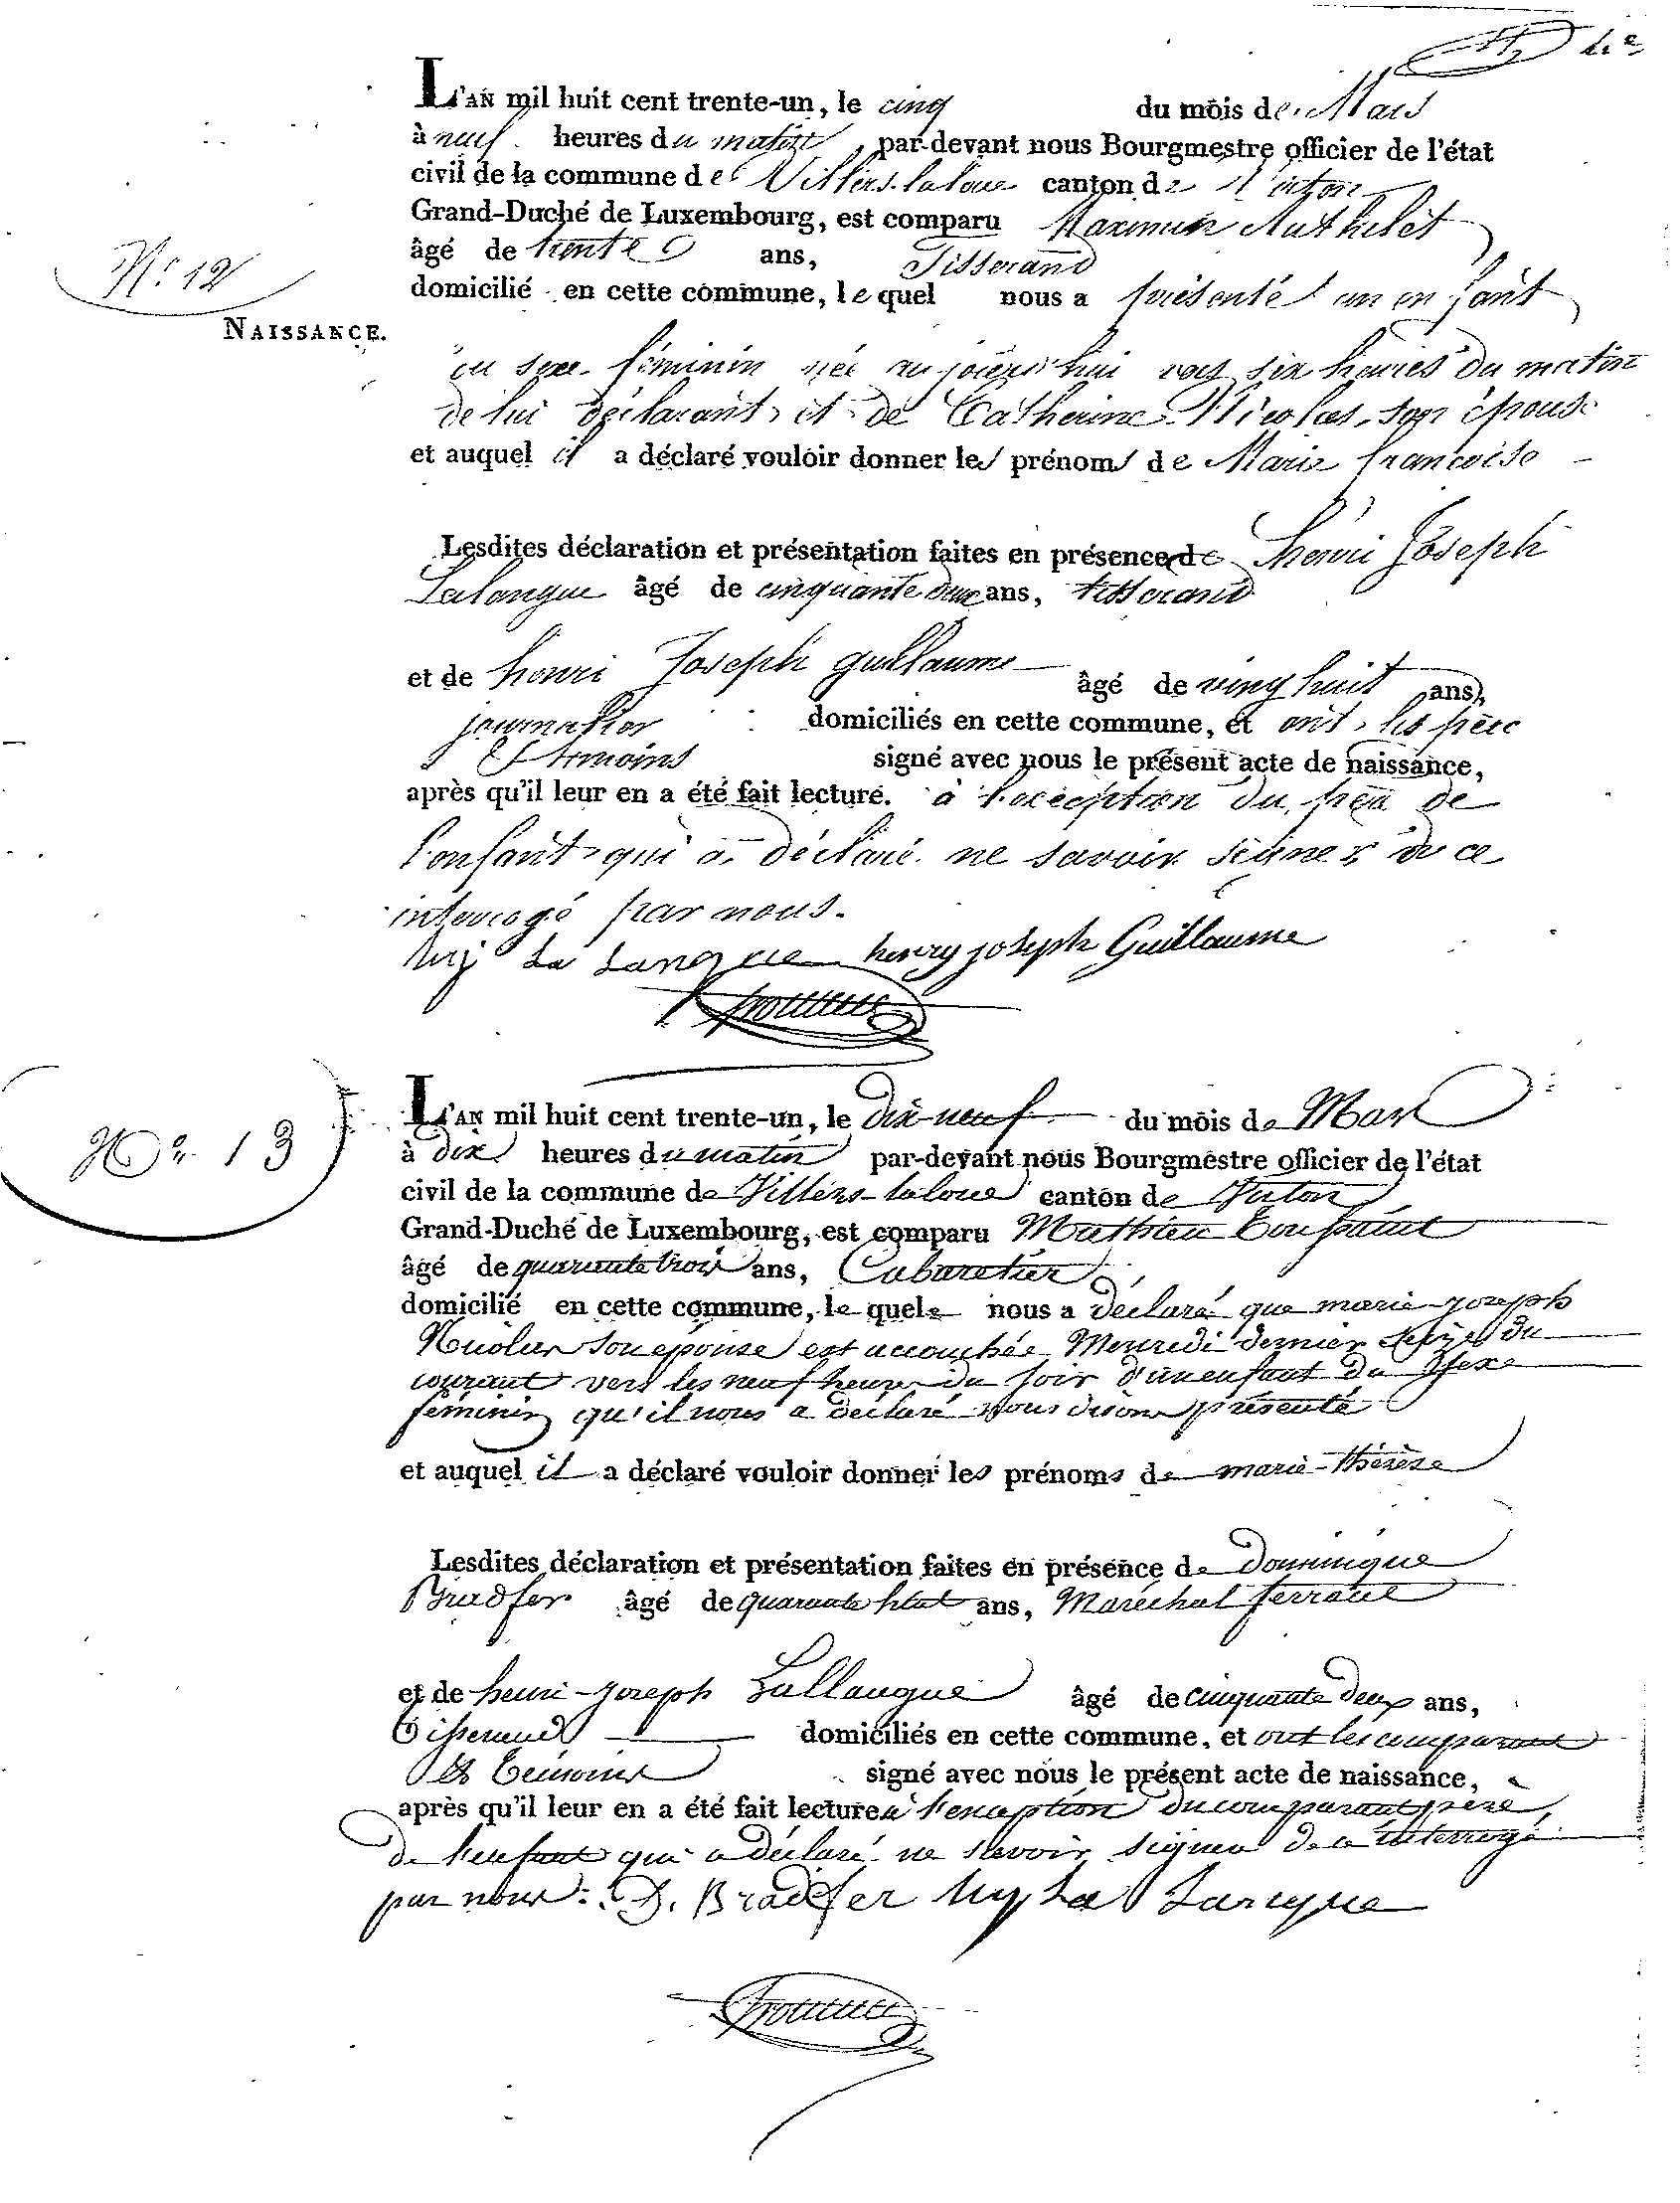 L'AN mil huit cent trente-un, le cinq du mois de Mars
à neuf heures du matin, par-devant nous Bourgmestre officier de l'état
civil de la commune de Villers-laloue canton de Virton
Grand-Duché de Luxembourg, est comparu Maximin Mathelet
âgé de trente ans, Tisserand
N° 12
domicilié en cette commune, lequel nous a présenté un enfant
NAISSANCE.
du sexe féminin née aujourd'hui vers six heures du matin
de lui déclarant et de Catherine Nicolas, son épouse
et auquel il a déclaré vouloir donner les prénoms de Marie francoise
Lesdites déclaration et présentation faites en présence de henri Joseph
Lalangue âgé de cinquante deux ans, tisserand
et de henri Joseph guillaume âgé de ving huit ans,
journalier domiciliés en cette commune, et ont les père
& temoins signé avec nous le présent acte de naissance,
après qu'il leur en a été fait lecture. à l'exception du père de
l'enfant qui a déclaré ne savoir signer de ce
interrogé par nous.
hrij La Langue henry joseph Guillaume
N° 13
L'AN mil huit cent trente-un, le dix-neuf du mois de Mars
à dix heures du matin par-devant nous Bourgmestre officier de l'état
civil de la commune de Villers-laloue canton de Virton
Grand-Duché de Luxembourg, est comparu Mathieu Toussaint
âgé de quarante trois ans, Cabaretier
domicilié en cette commune, le quel nous a déclaré que marie-joseph
Nicolas son épouse est accouchée Mercredi dernier seize du
courant vers les neuf heures du soir d'un enfant du sexe
féminin qu'il nous a déclaré nous disons présenté
et auquel il a déclaré vouloir donner les prénoms de marie-thérèse
Lesdites déclaration et présentation faites en présence de dominique
Bradfer âgé de quarante sept ans, Maréchal ferrant
et de henri-joseph Lallangue âgé de cinquante deux ans,
Tisserand domiciliés en cette commune, et ont les comparant
et Témoins signé avec nous le présent acte de naissance,
après qu'il leur en a été fait lecture à l'exception du comparant père
de l'enfant qui a déclaré ne savoir signer de ce interrogé
par nous. D. Bradfer hry La Langue